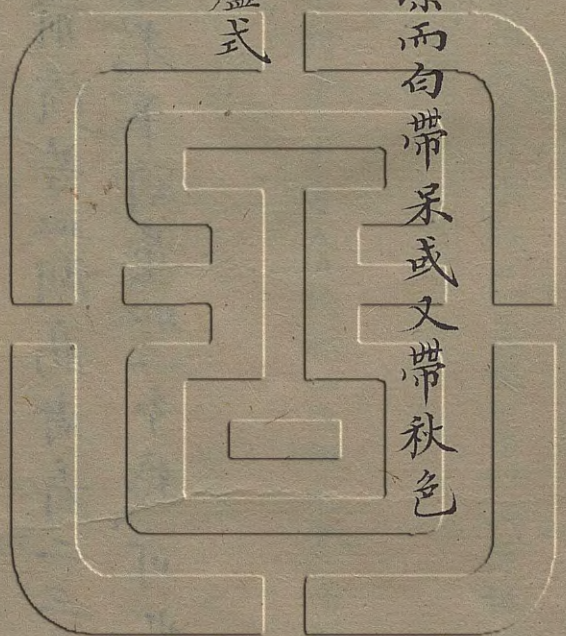 而勻帶呆或又帶秋色
式